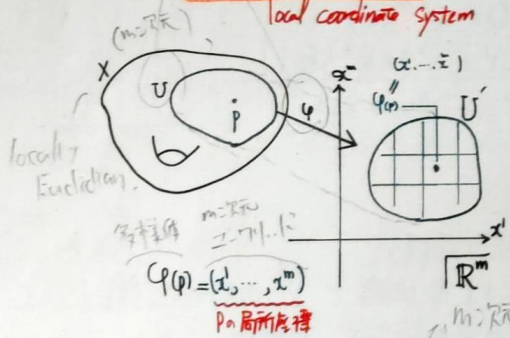 local coordinate system
(m次元)
X
U
p
φ
x^m
(x¹,…,x^m)
φ(p)
U′
locally
Euclidian.
多様体
m次元
ユークリッド
x¹
φ(p)=(x¹,…,x^m)
ℝ^m
pの局所座標
m次元